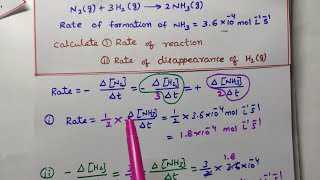 N₂(g) + 3H₂(g) → 2NH₃(g)
Rate of formation of NH₃ = 3.6×10⁻⁴ mol L⁻¹ S⁻¹
Calculate ① Rate of reaction
② Rate of disappearance of H₂(g)
Rate = - Δ[N₂]/Δt = - Δ[H₂]/3Δt = + Δ[NH₃]/2Δt
(i) Rate = 1/2 × Δ[NH₃]/Δt = 1/2 × 3.6×10⁻⁴ mol L⁻¹ S⁻¹
= 1.8×10⁻⁴ mol L⁻¹ S⁻¹
(ii) - Δ[H₂] = 3 Δ[NH₃] = 3 1.8 ×10⁻⁴ mol L⁻¹ S⁻¹